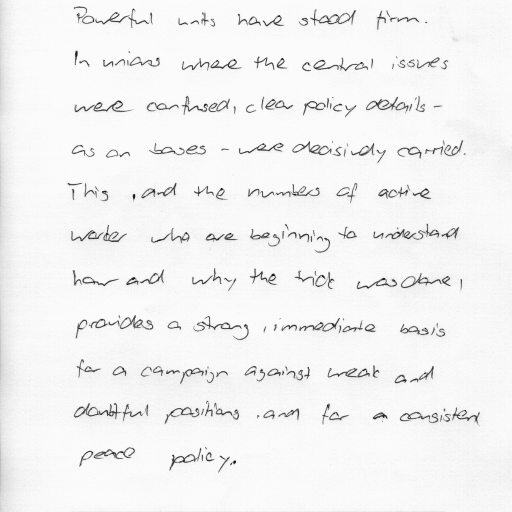 Powerful units have stood firm.
In unions where the central issues
were confused, clear policy details -
as on bases - were decisively carried.
This , and the numbers of active
worker who are beginning to understand
how and why the trick was done,
provides a strong , immediate basis
for a campaign against weak and
doubtful positions , and for a consistent
peace policy.